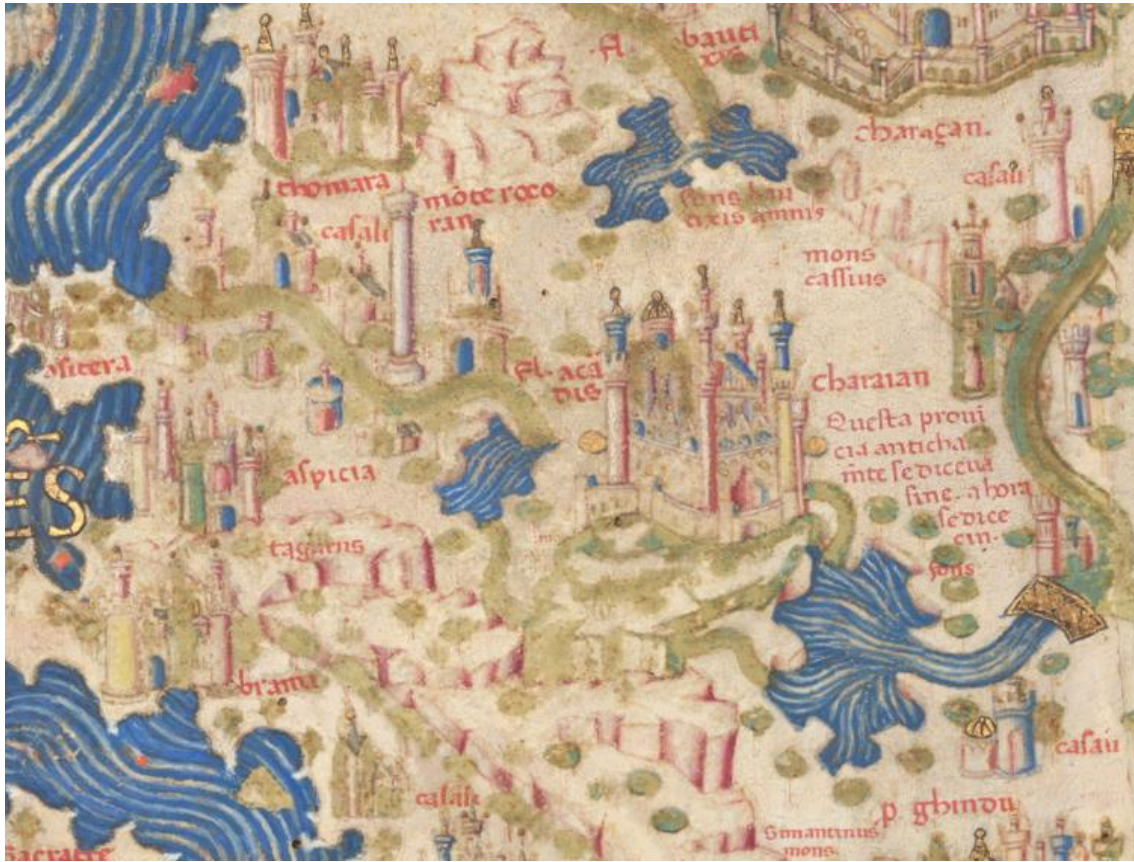 fl.
bauti
xis
charagan.
casali
thomara
mōte roco
ran
casali
fons bau
tixis amnis
mons
cassius
fl. acā
dis
charaian
Questa provi
cia anticha
mīte se diceva
sine. ahora
se dice
cin.
fons
aspicia
tagaens
brama
ES
casali
casali
p ghindu
Simantinus
mons.